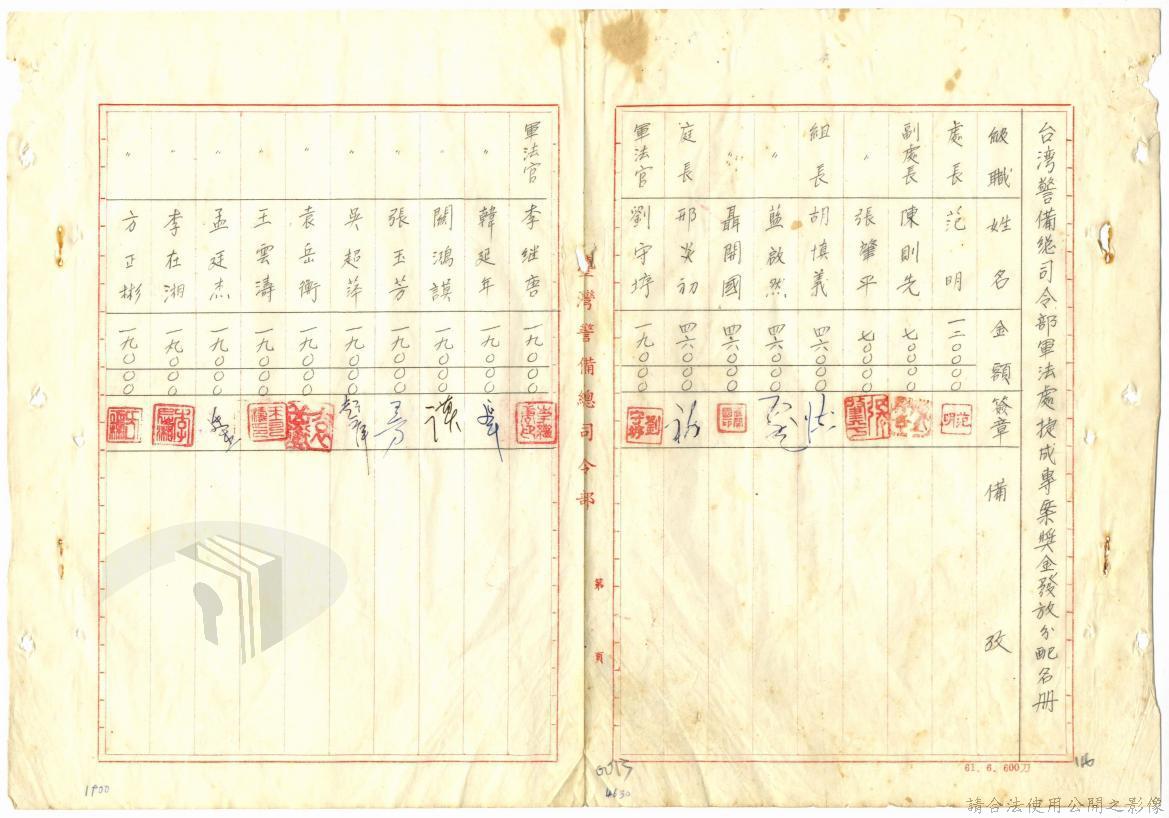 台湾警備總司令部軍法處捷成專案獎金發放分配名册
級職 姓名 金額 簽章 備攷
處長 范明 一二〇〇〇〇
副處長 陳則先 七〇〇〇〇
〃 張肇平 七〇〇〇〇
組長 胡慎義 四六〇〇〇
〃 藍啟然 四六〇〇〇
〃 聶開國 四六〇〇〇
庭長 邢炎初 四六〇〇〇
軍法官 劉守塝 一九〇〇〇
臺灣警備總司令部
第 頁
軍法官 李继唐 一九〇〇〇
〃 韓延年 一九〇〇〇
〃 關鴻謨 一九〇〇〇
〃 張玉芳 一九〇〇〇
〃 吳超萍 一九〇〇〇
〃 袁岳衡 一九〇〇〇
〃 王雲濤 一九〇〇〇
〃 孟廷杰 一九〇〇〇
〃 李在湘 一九〇〇〇
〃 方正彬 一九〇〇〇
61. 6. 600刀
4630
1900
請合法使用公開之影像